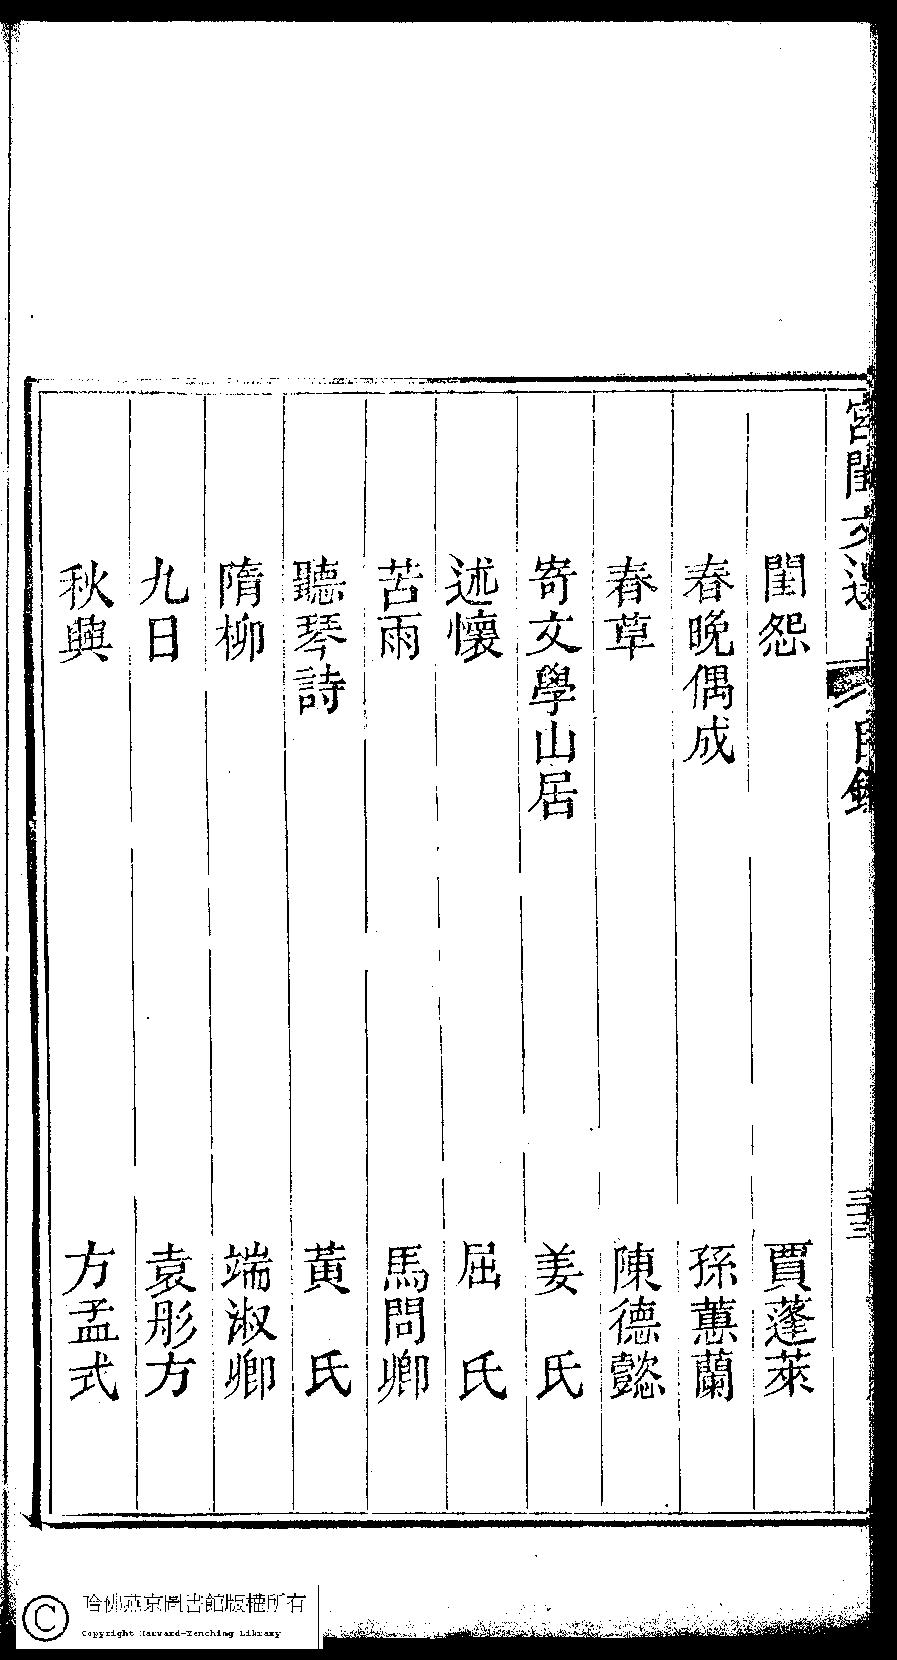 宮閨文選 目錄 三十三
閨怨 賈蓬萊
春晚偶成 孫蕙蘭
春草 陳德懿
寄文學山居 姜氏
述懷 屈氏
苦雨 馬問卿
聽琴詩 黃氏
隋柳 端淑卿
九日 袁彤方
秋興 方孟式
哈佛燕京圖書館版權所有
Copyright Harvard-Yenching Library